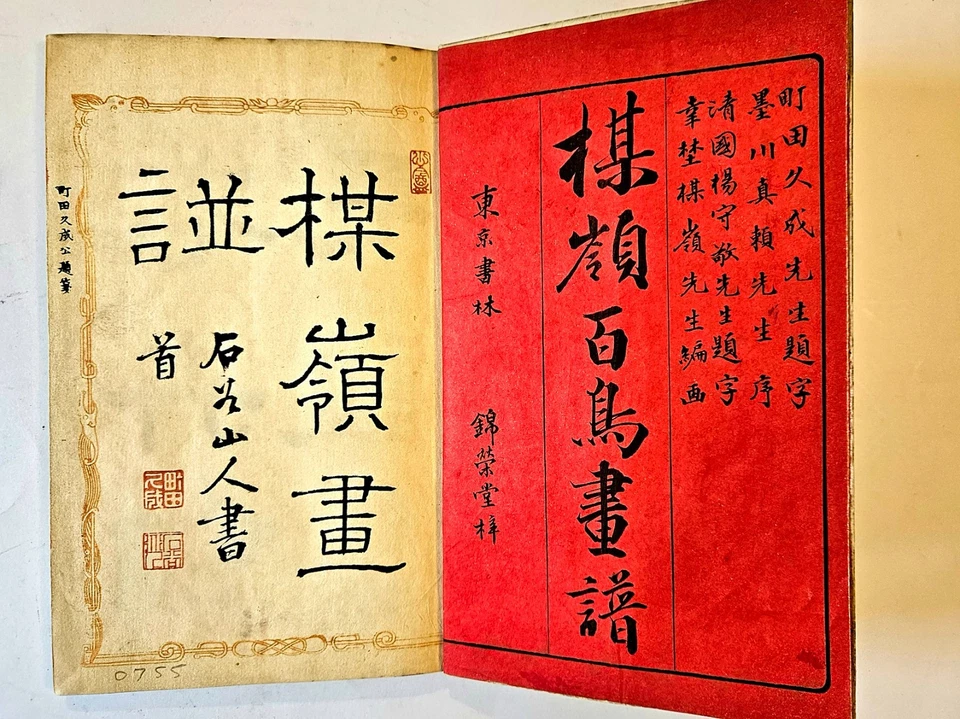 町田久成先生題字
墨川真頼先生序
清國楊守敬先生題字
幸埜楳嶺先生編画
楳嶺百鳥畫譜
東京書林 錦榮堂梓
楳嶺畫
諩
石谷山人書
首
町田久成
町田久成公題簽
0755